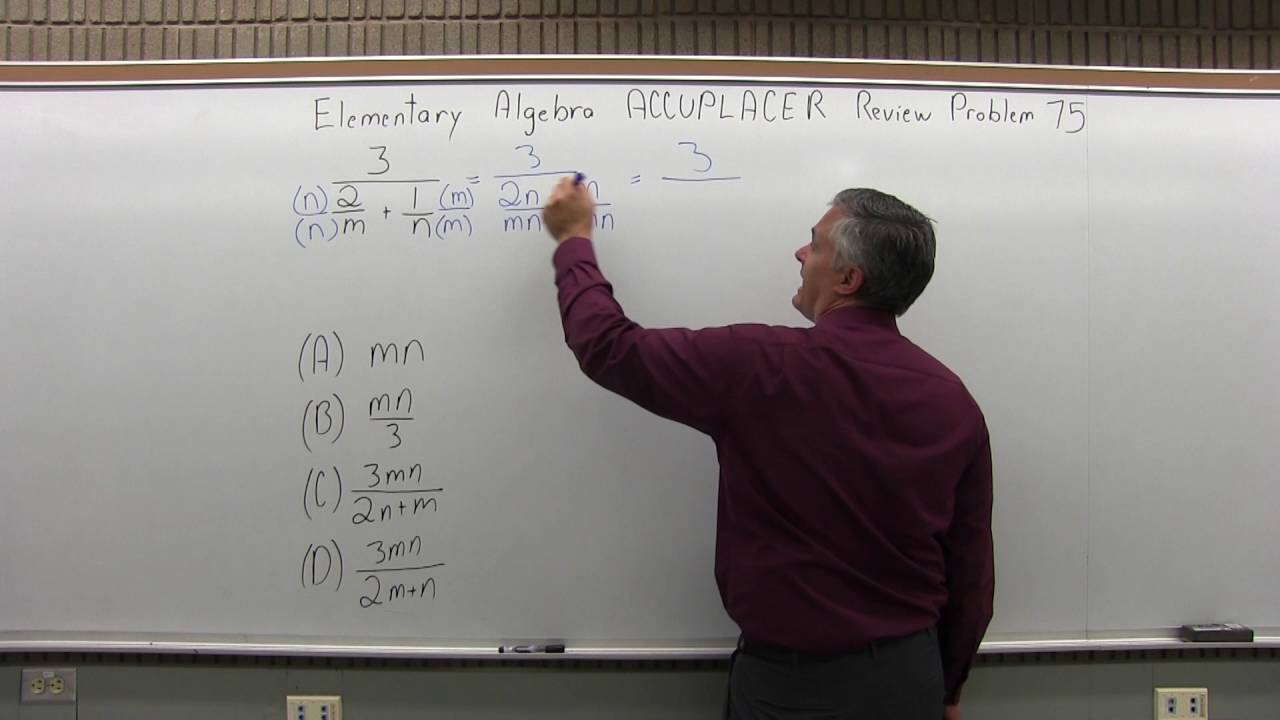 Elementary Algebra ACCUPLACER Review Problem 75
3 3 3
(n) 2 1 (m) = 2n =
(n) m + n (m) mn
(A) mn
(B) mn
3
(C) 3mn
2n+m
(D) 3mn
2m+n